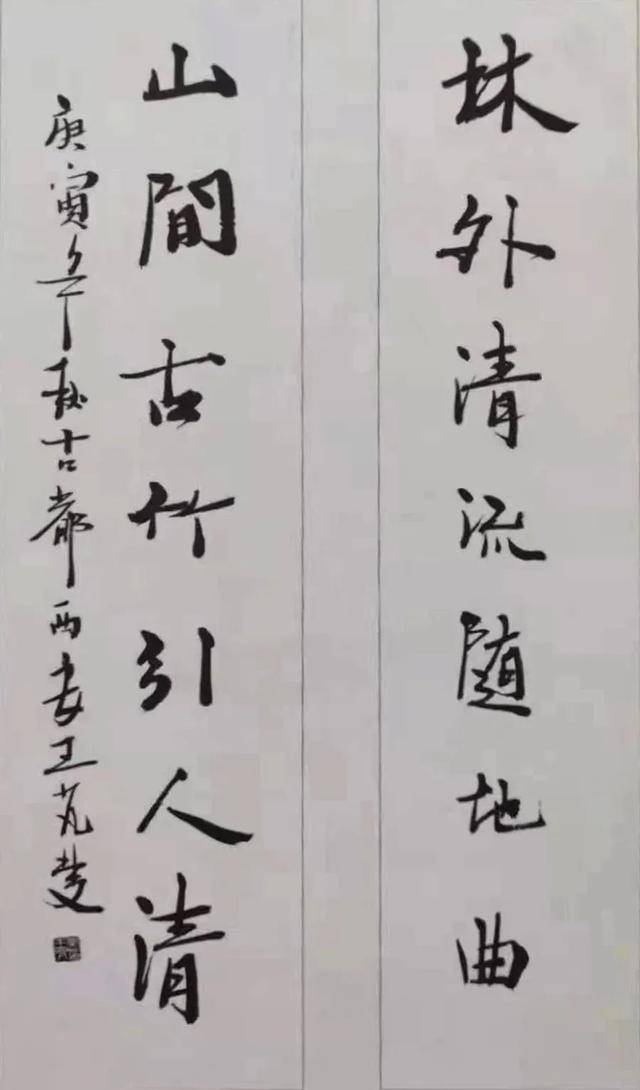 林外清流随地曲
山間古竹引人清
庚寅年秋古都西安王芃